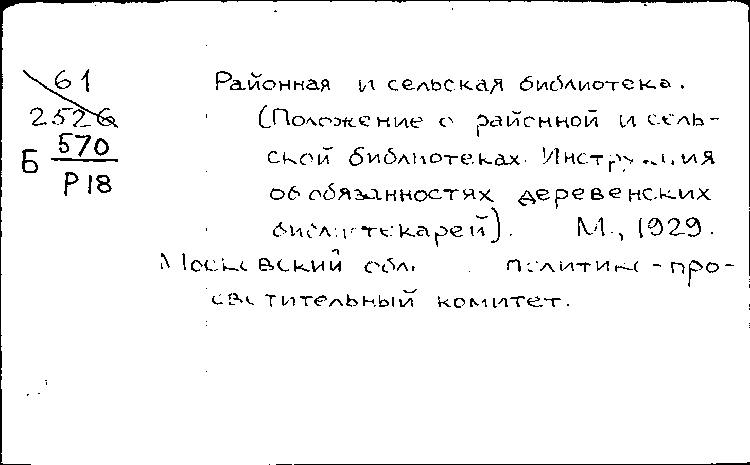 61
2526
Б 570
Р18
Районная и сельская библиотека.
(Положение о районной и сель-
ской библиотеках. Инструкция
об обязанностях деревенских
библиотекарей). М., 1929.
Московский обл. политико-про-
светительный комитет.